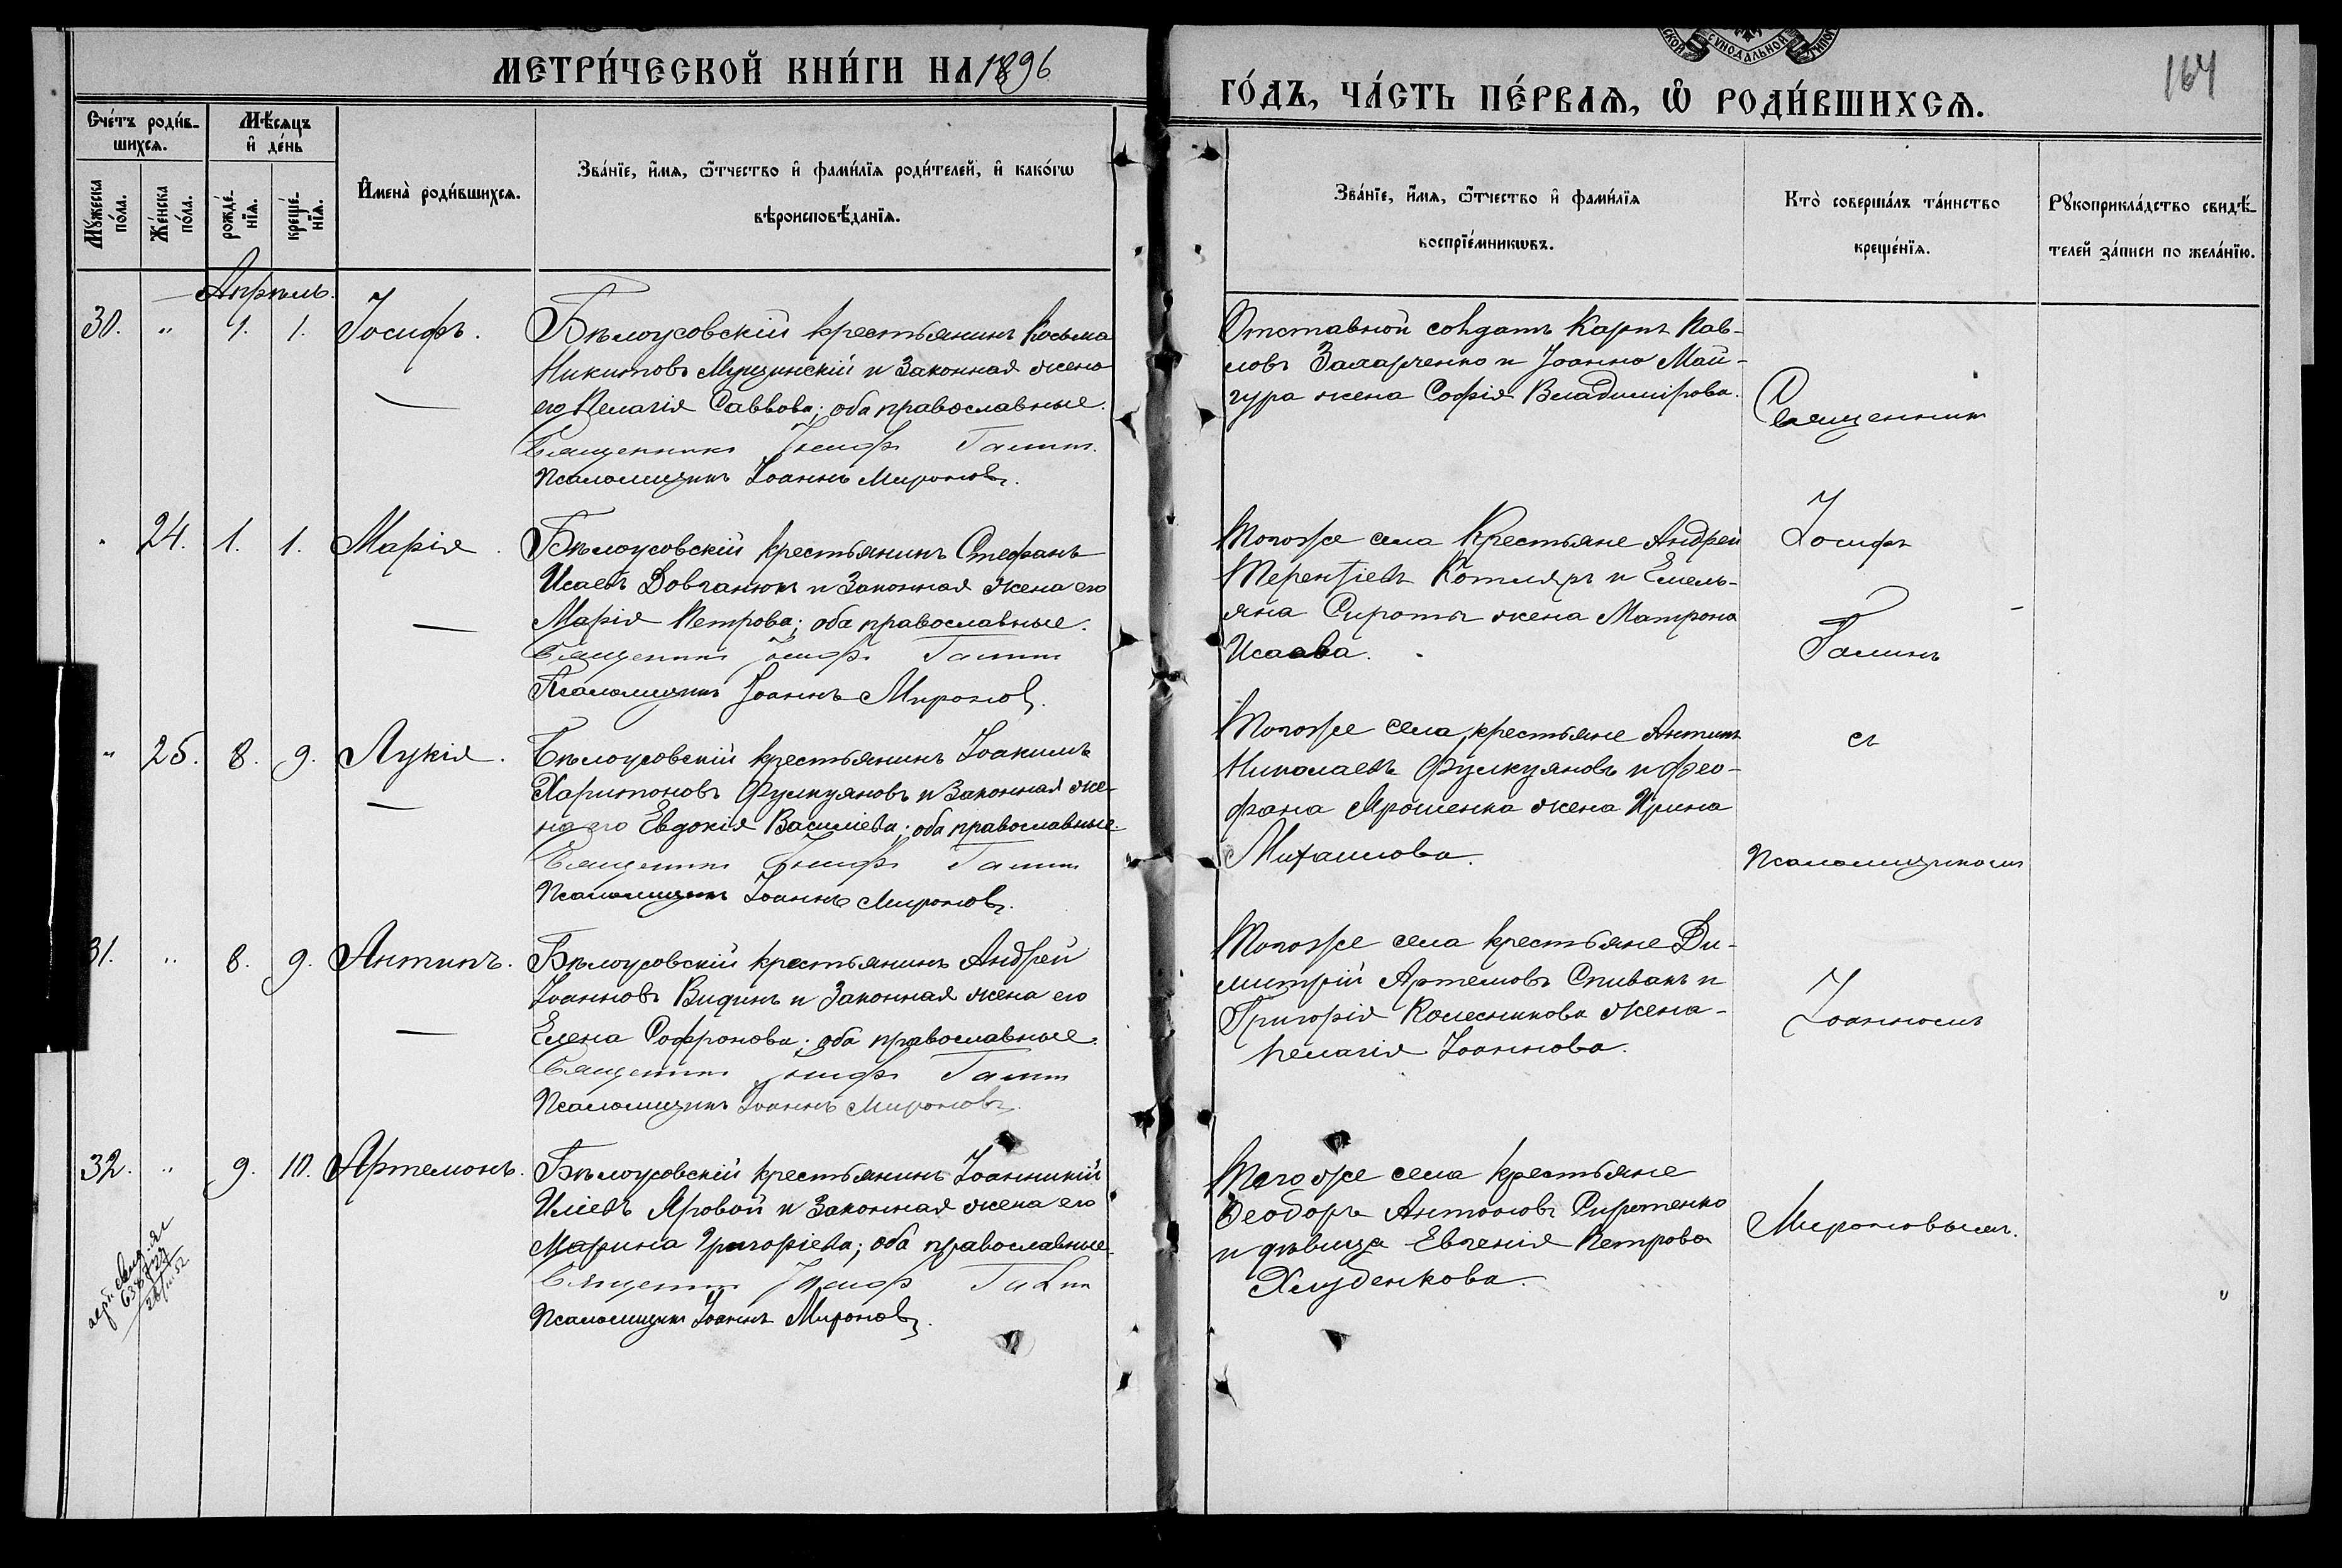 МЕТРИ́ЧЕСКОЙ КНИ́ГИ НА 1896
ГО́ДЪ, ЧА́СТЬ ПЕ́РВАѦ, Ѡ҆ РОДИ́ВШИХСѦ.
164
Сче́тъ роди́в-
шихсѧ.
Мѣ́сѧцъ
и҆ де́нь
Мꙋ́жеска
по́ла.
Же́нска
по́ла.
рожде́-
нїѧ.
креще́-
нїѧ.
И҆мена̀ роди́вшихсѧ.
Зва́нїе, и҆́мѧ, ѻ҆́тчество и҆ фами́лїѧ роди́телей, и҆ како́гѡ
вѣроисповѣ́данїѧ.
Зва́нїе, и҆́мѧ, ѻ҆́тчество и҆ фами́лїѧ
воспрїе́мникѡвъ.
Кто̀ соверша́лъ та́инство
креще́нїѧ.
Рꙋкоприкла́дство свидѣ́-
телей за́писи по жела́нїю.
Апрѣль.
30. " 1. 1. Іосифъ.
Бѣлоусовскій крестьянинъ Косьма
Никитовъ и Законная жена
его Пелагія Саввова; оба православные.
Священникъ Іосифъ Галинъ.
Псаломщикъ Іоаннъ Мироновъ.
Отставной солдатъ Карпъ Пав-
ловъ Захарченко и Іоанна Май-
гура жена Софія Владимірова.
" 24. 1. 1. Марія.
Бѣлоусовскій крестьянинъ Стефанъ
Исаевъ Довганюкъ и Законная жена его
Марія Петрова; оба православные.
Священникъ Іосифъ Галинъ
Псаломщикъ Іоаннъ Мироновъ.
Тогоже села Крестьяне Андрей
Терентіевъ Котляръ и Емель-
яна Сироты жена Матрона
Исаева.
" 25. 8. 9. Лукія.
Бѣлоусовскій крестьянинъ Іоакимъ
Харитоновъ Фулкуяновъ и Законная же-
на его Евдокія Василіева; оба православные.
Священникъ Іосифъ Галинъ
Псаломщикъ Іоаннъ Мироновъ.
Тогоже села крестьяне Антипъ
Николаевъ Фулкуяновъ и Фео-
фана Ярошенка жена Ирина
Михаилова.
31. " 8. 9. Антипъ.
Бѣлоусовскій крестьянинъ Андрей
Іоанновъ и Законная жена его
Елена Софронова; оба православные.
Священникъ Іосифъ Галинъ
Псаломщикъ Іоаннъ Мироновъ.
Тогоже села крестьяне Ди-
митрій Артемовъ Спивакъ и
Григорія Колесникова жена
Пелагія Іоаннова.
32. " 9. 10. Артемонъ.
Бѣлоусовскій крестьянинъ Іоанникій
Иліевъ Яровой и Законная жена его
Марина Григоріева; оба православные.
Священникъ Іосифъ Галинъ
Псаломщикъ Іоаннъ Мироновъ.
Тогоже села крестьяне
Ѳеодоръ Антоновъ Сиротенко
и дѣвица Евгенія Петрова
Хлуденкова.
Священникъ
Іосифъ
Галинъ
съ
Псаломщикомъ
Іоанномъ
Мироновымъ.